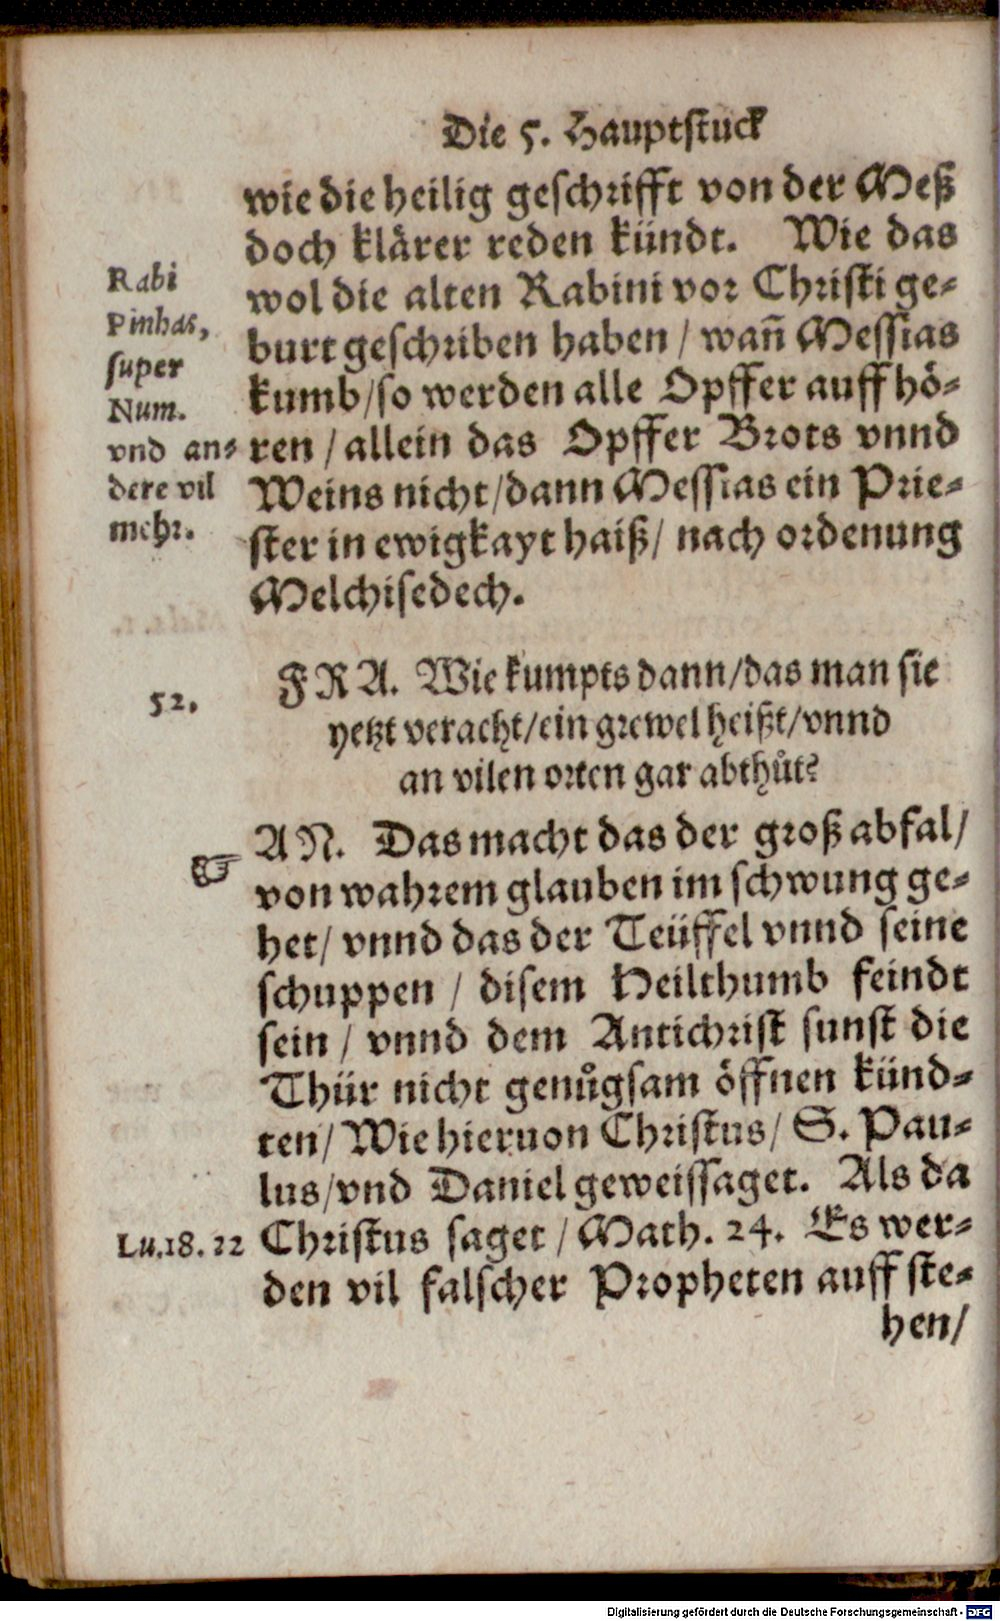 Die 5. Hauptstuck
wie die heilig geschrifft von der Meß
doch klärer reden kündt. Wie das
wol die alten Rabini vor Christi ge-
burt geschriben haben / wañ Messias
kumb / so werden alle Opffer auffhö-
ren / allein das Opffer Brots vnnd
Weins nicht / dann Messias ein Prie-
ster in ewigkayt haiß / nach ordenung
Melchisedech.
Rabi
Pinhas,
super
Num.
vnd an-
dere vil
mehr.
52.
FRA. Wie kumpts dann / das man sie
yetzt veracht / ein grewel heißt / vnnd
an vilen orten gar abthůt?
☞
AN. Das macht das der groß abfal /
von wahrem glauben im schwung ge-
het / vnnd das der Teüffel vnnd seine
schuppen / disem Heilthumb feindt
sein / vnnd dem Antichrist sunst die
Thür nicht genůgsam öffnen künd-
ten / Wie hieruon Christus / S. Pau-
lus / vnd Daniel geweissaget. Als da
Lu. 18. 22
Christus saget / Math. 24. Es wer-
den vil falscher Propheten auffste-
hen /
Digitalisierung gefördert durch die Deutsche Forschungsgemeinschaft - DFG